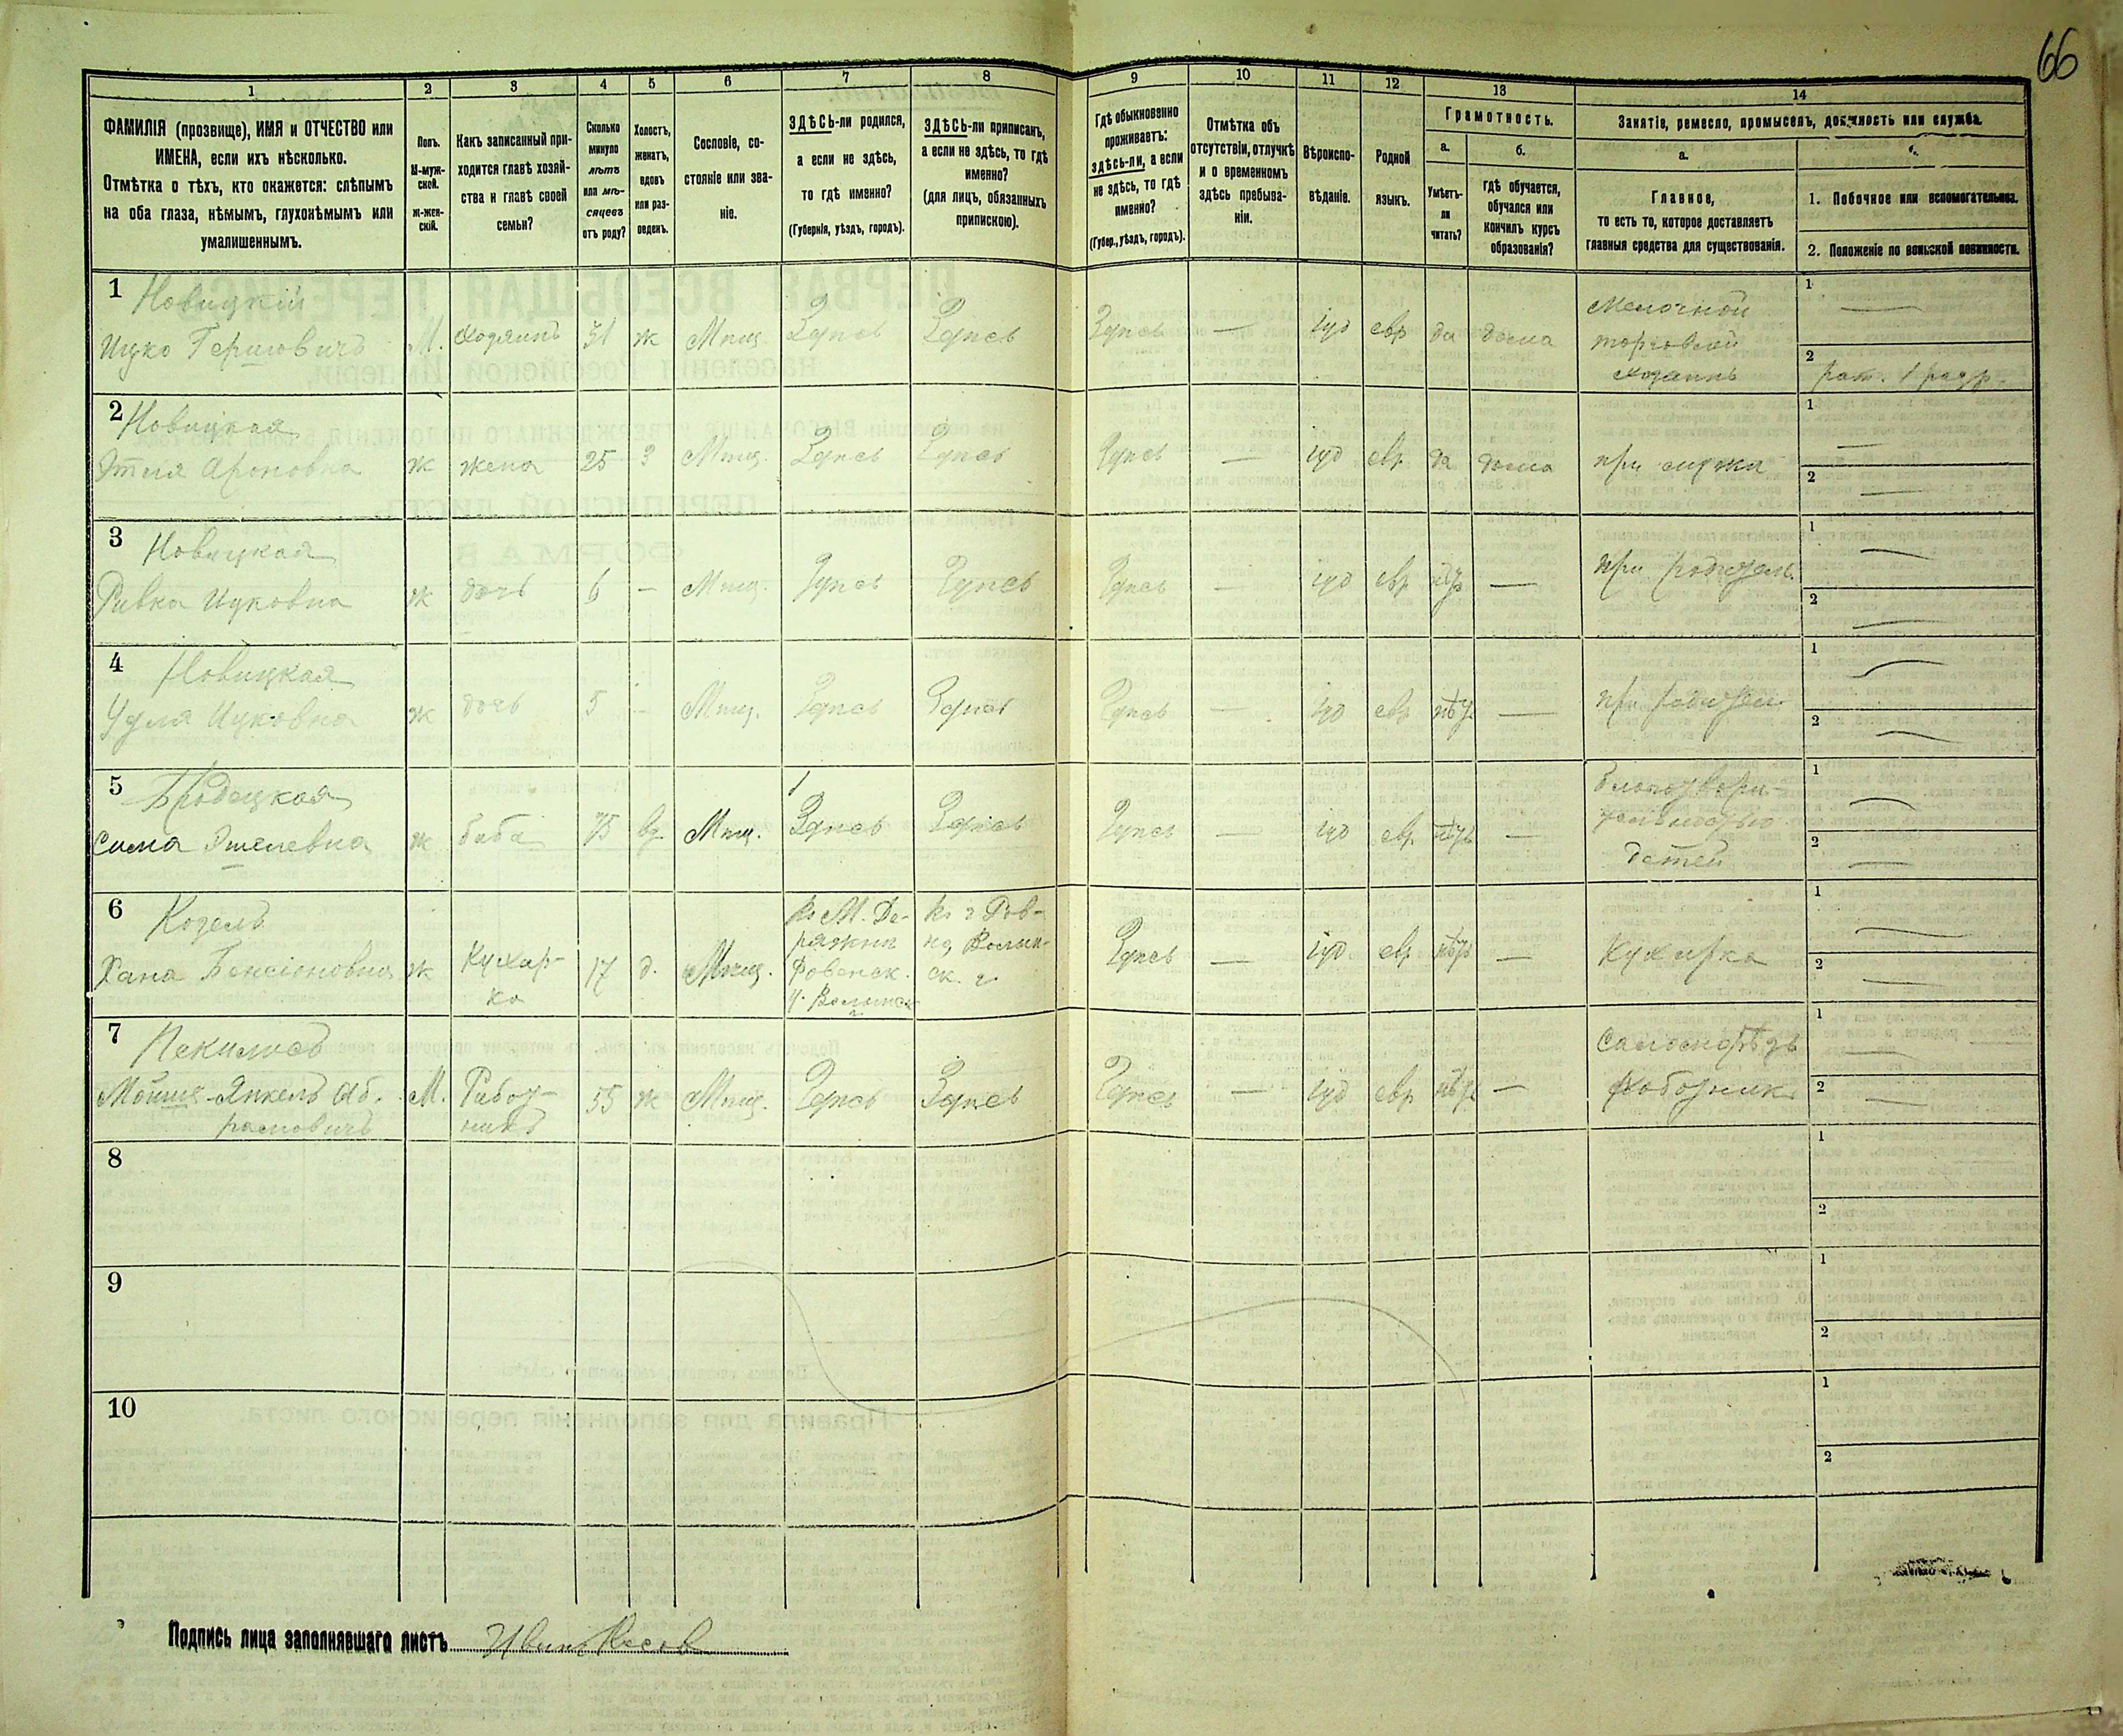 66
1 2 3 4 5 6 7 8 9 10 11 12 13 14
ФАМИЛІЯ (прозвище), ИМЯ и ОТЧЕСТВО или
ИМЕНА, если ихъ нѣсколько.
Отмѣтка о тѣхъ, кто окажется: слѣпымъ
на оба глаза, нѣмымъ, глухонѣмымъ или
умалишеннымъ.
Полъ.
М-муж-
ской.
ж-жен-
скій.
Какъ записанный при-
ходится главѣ хозяй-
ства и главѣ своей
семьи?
Сколько
минуло
лѣтъ
или мѣ-
сяцевъ
отъ роду?
Холостъ,
женатъ,
вдовъ
или раз-
веденъ.
Сословіе, со-
стояніе или зва-
ніе.
ЗДѢСЬ-ли родился,
а если не здѣсь,
то гдѣ именно?
(Губернія, уѣздъ, городъ).
ЗДѢСЬ-ли приписанъ,
а если не здѣсь, то гдѣ
именно?
(для лицъ, обязанныхъ
припискою).
Гдѣ обыкновенно
проживаетъ:
здѣсь-ли, а если
не здѣсь, то гдѣ
именно?
(Губер., уѣздъ, городъ).
Отмѣтка объ
отсутствіи, отлучкѣ
и о временномъ
здѣсь пребыва-
ніи.
Вѣроиспо-
вѣданіе.
Родной
языкъ.
Грамотность.
а.
Умѣетъ-
ли
читать?
б.
гдѣ обучается,
обучался или
кончилъ курсъ
образованія?
Занятіе, ремесло, промыселъ, должность или служба.
а.
Главное,
то есть то, которое доставляетъ
главныя средства для существованія.
1. Побочное или вспомогательное.
2. Положеніе по воинской повинности.
1 Новицкій
Ицко Гершовичъ М. хозяинъ 31 ж Мѣщ Здѣсь Здѣсь Здѣсь — іуд евр да дома
Мелочной
торговлей
хозяинъ
1 —
2 рат. 1 разр.
2 Новицкая
Этля Ароновна ж жена 25 з Мѣщ. Здѣсь Здѣсь Здѣсь — іуд евр да дома при мужѣ
1 —
2 —
3 Новицкая
Ривка Ицковна ж дочь 6 — Мѣщ. Здѣсь Здѣсь Здѣсь — іуд евр нѣт — при родител.
1 —
2 —
4 Новицкая
Ицковна ж дочь 5 — Мѣщ. Здѣсь Здѣсь Здѣсь — іуд евр нѣт — при родител.
1 —
2 —
5 Бродецкая
Сима ж баба 75 вд. Мѣщ. Здѣсь Здѣсь Здѣсь — іуд евр нѣтъ —
благотвори-
тельностью
детей
1 —
2 —
6 Козелъ
Хана Бенсіоновна ж
Кухар-
ка
17 д. Мѣщ.
въ М. Де-
ражнѣ
Ровенск.
у. Волынск
г.
въ г. Ров-
но, Волын-
ск. г.
Здѣсь — іуд. евр нѣтъ — Кухарка
1 —
2 —
7 Пекилисъ
Мойше-Янкель Аб-
рамовичъ
М.
Работ-
никъ
55 ж Мѣщ. Здѣсь Здѣсь Здѣсь — іуд евр нѣт —
1 —
2 —
8
1
2
9
1
2
10
1
2
Подпись лица заполнявшаго листъ